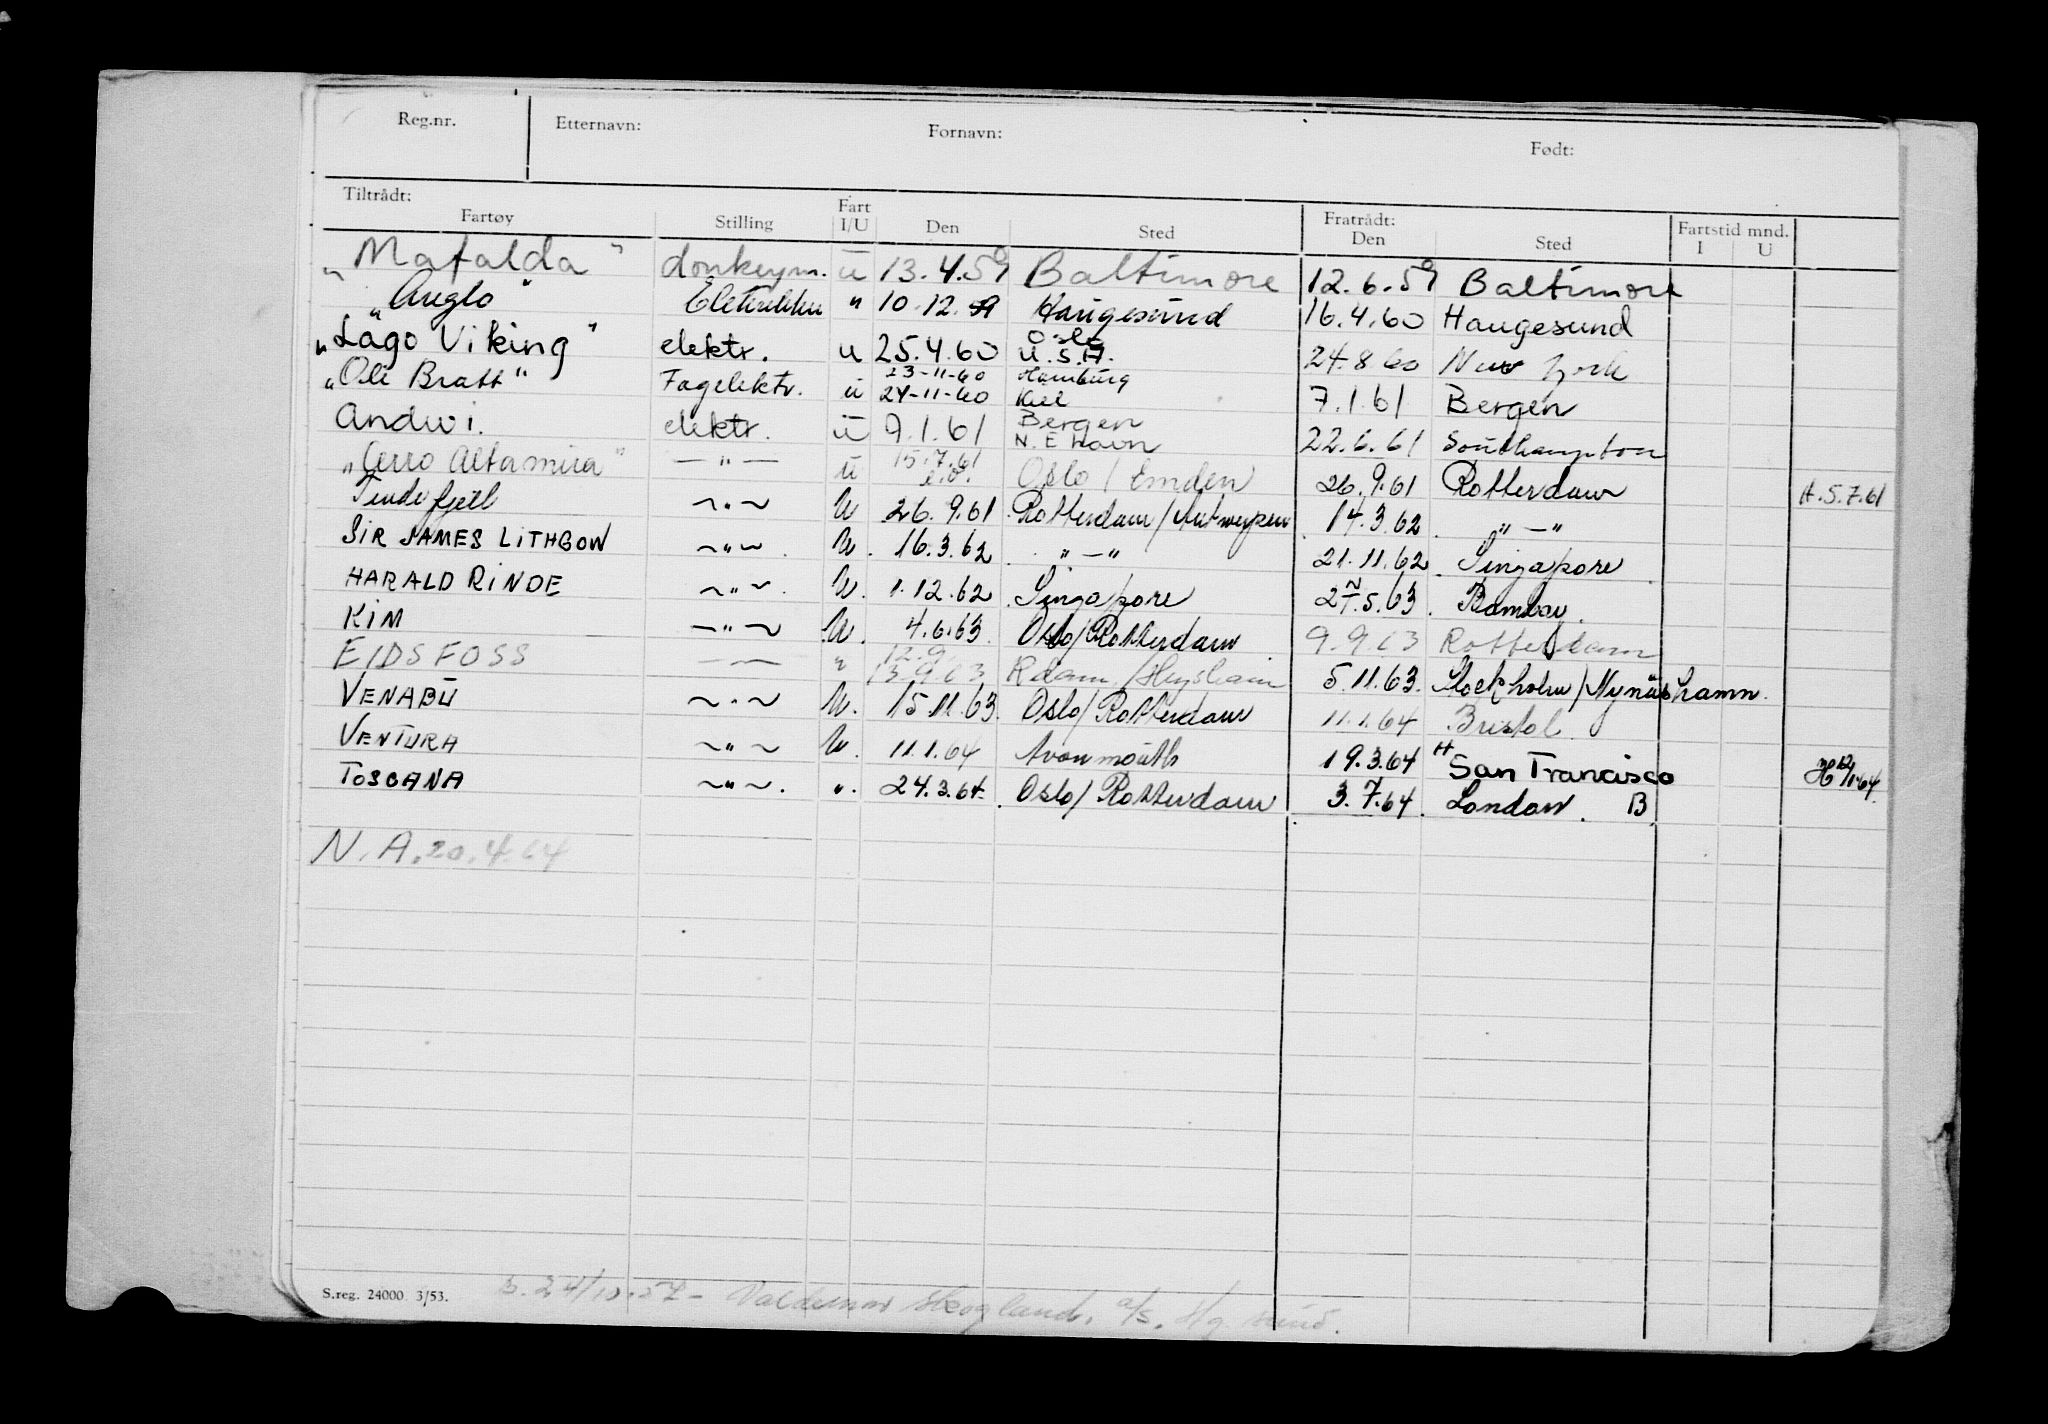 Reg.nr. Etternavn: Fornavn: Født:
Tiltrådt: Fratrådt: Fartstid mnd.
Fartøy Stilling Fart I/U Den Sted Den Sted I U
"Mafalda" donkeym. u 13.4.59 Baltimore 12.6.59 Baltimore
"Anglo" Elektriker " 10.12.59 Haugesund 16.4.60 Haugesund
"Lago Viking" elektr. u 25.4.60 Oslo U.S.A. 24.8.60 New York
"Ole Bratt" Fagelektr. u 23-11-60 24-11-60 Hamburg Kiel 7.1.61 Bergen
Andwi. elektr. u 9.1.61 Bergen N.E havn 22.6.61 Southampton
"Cerro Altamira" — " — u 15.7.61 Oslo / Emden 26.9.61 Rotterdam H.5.7.61
Tindefjell ~ " ~ U 26.9.61 Rotterdam/Antwerpen 14.3.62 " — "
SIR JAMES LITHGOW ~ " ~ . U. 16.3.62 " — " 21.11.62 Singapore
HARALD RINDE ~ " ~ . U. 1.12.62 Singapore 27.5.63. Bombay.
KIM — " ~ U. 4.6.63. Oslo/Rotterdam 9.9.63 Rotterdam
EIDSFOSS — — " 12.9. 13.9.63 Rdam./Heysham 5.11.63. Stockholm/Nynäshamn.
VENABU ~ " ~ U. 15.11.63. Oslo/Rotterdam 11.1.64 Bristol.
VENTURA ~ " ~ U. 11.1.64 Avonmouth 19.3.64 H San Francisco
TOSCANA ~ " ~ . " . 24.3.64. Oslo/Rotterdam 3.7.64. London. B
N.A. 20.4.64
S.reg. 24000 3/53. 24/10.57 - Valdemar Skogland. a/s. Hg sund.